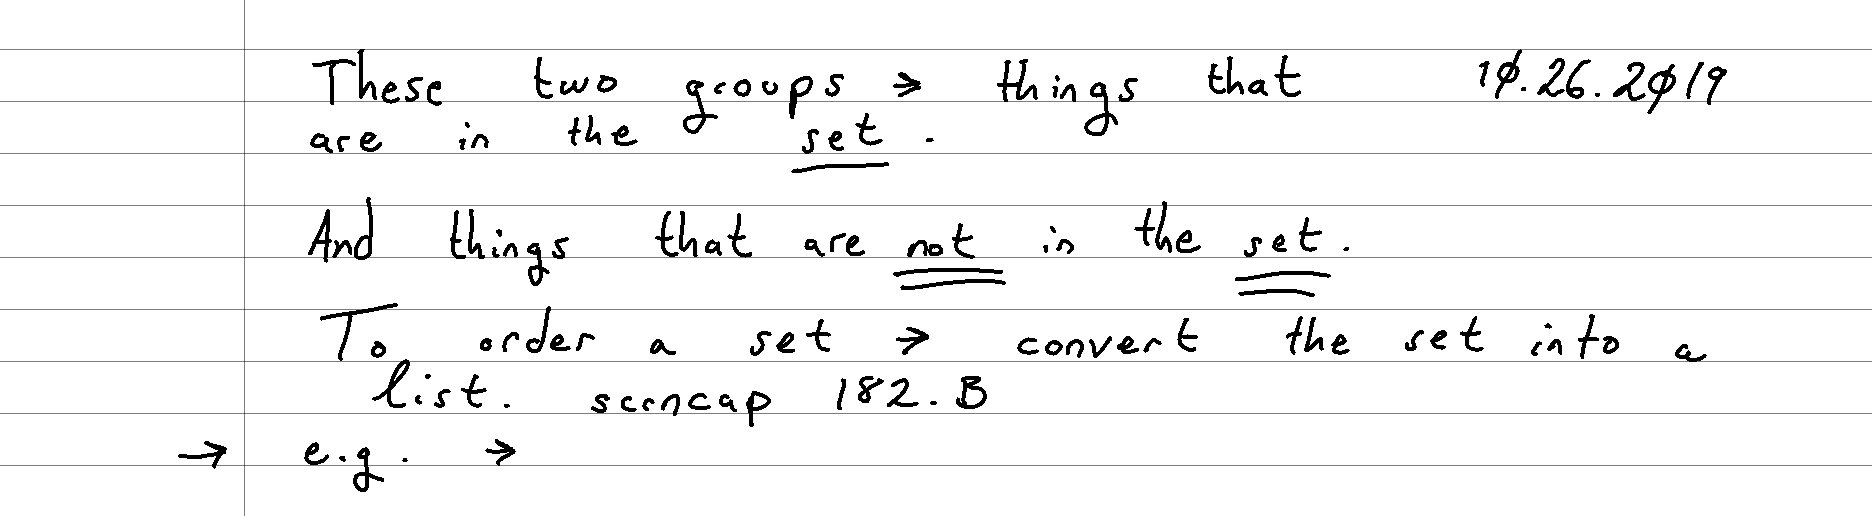 These two groups → things that 10.26.2019
are in the set.
And things that are not in the set.
To order a set → convert the set into a
list. scrncap 182.B
→ e.g. →